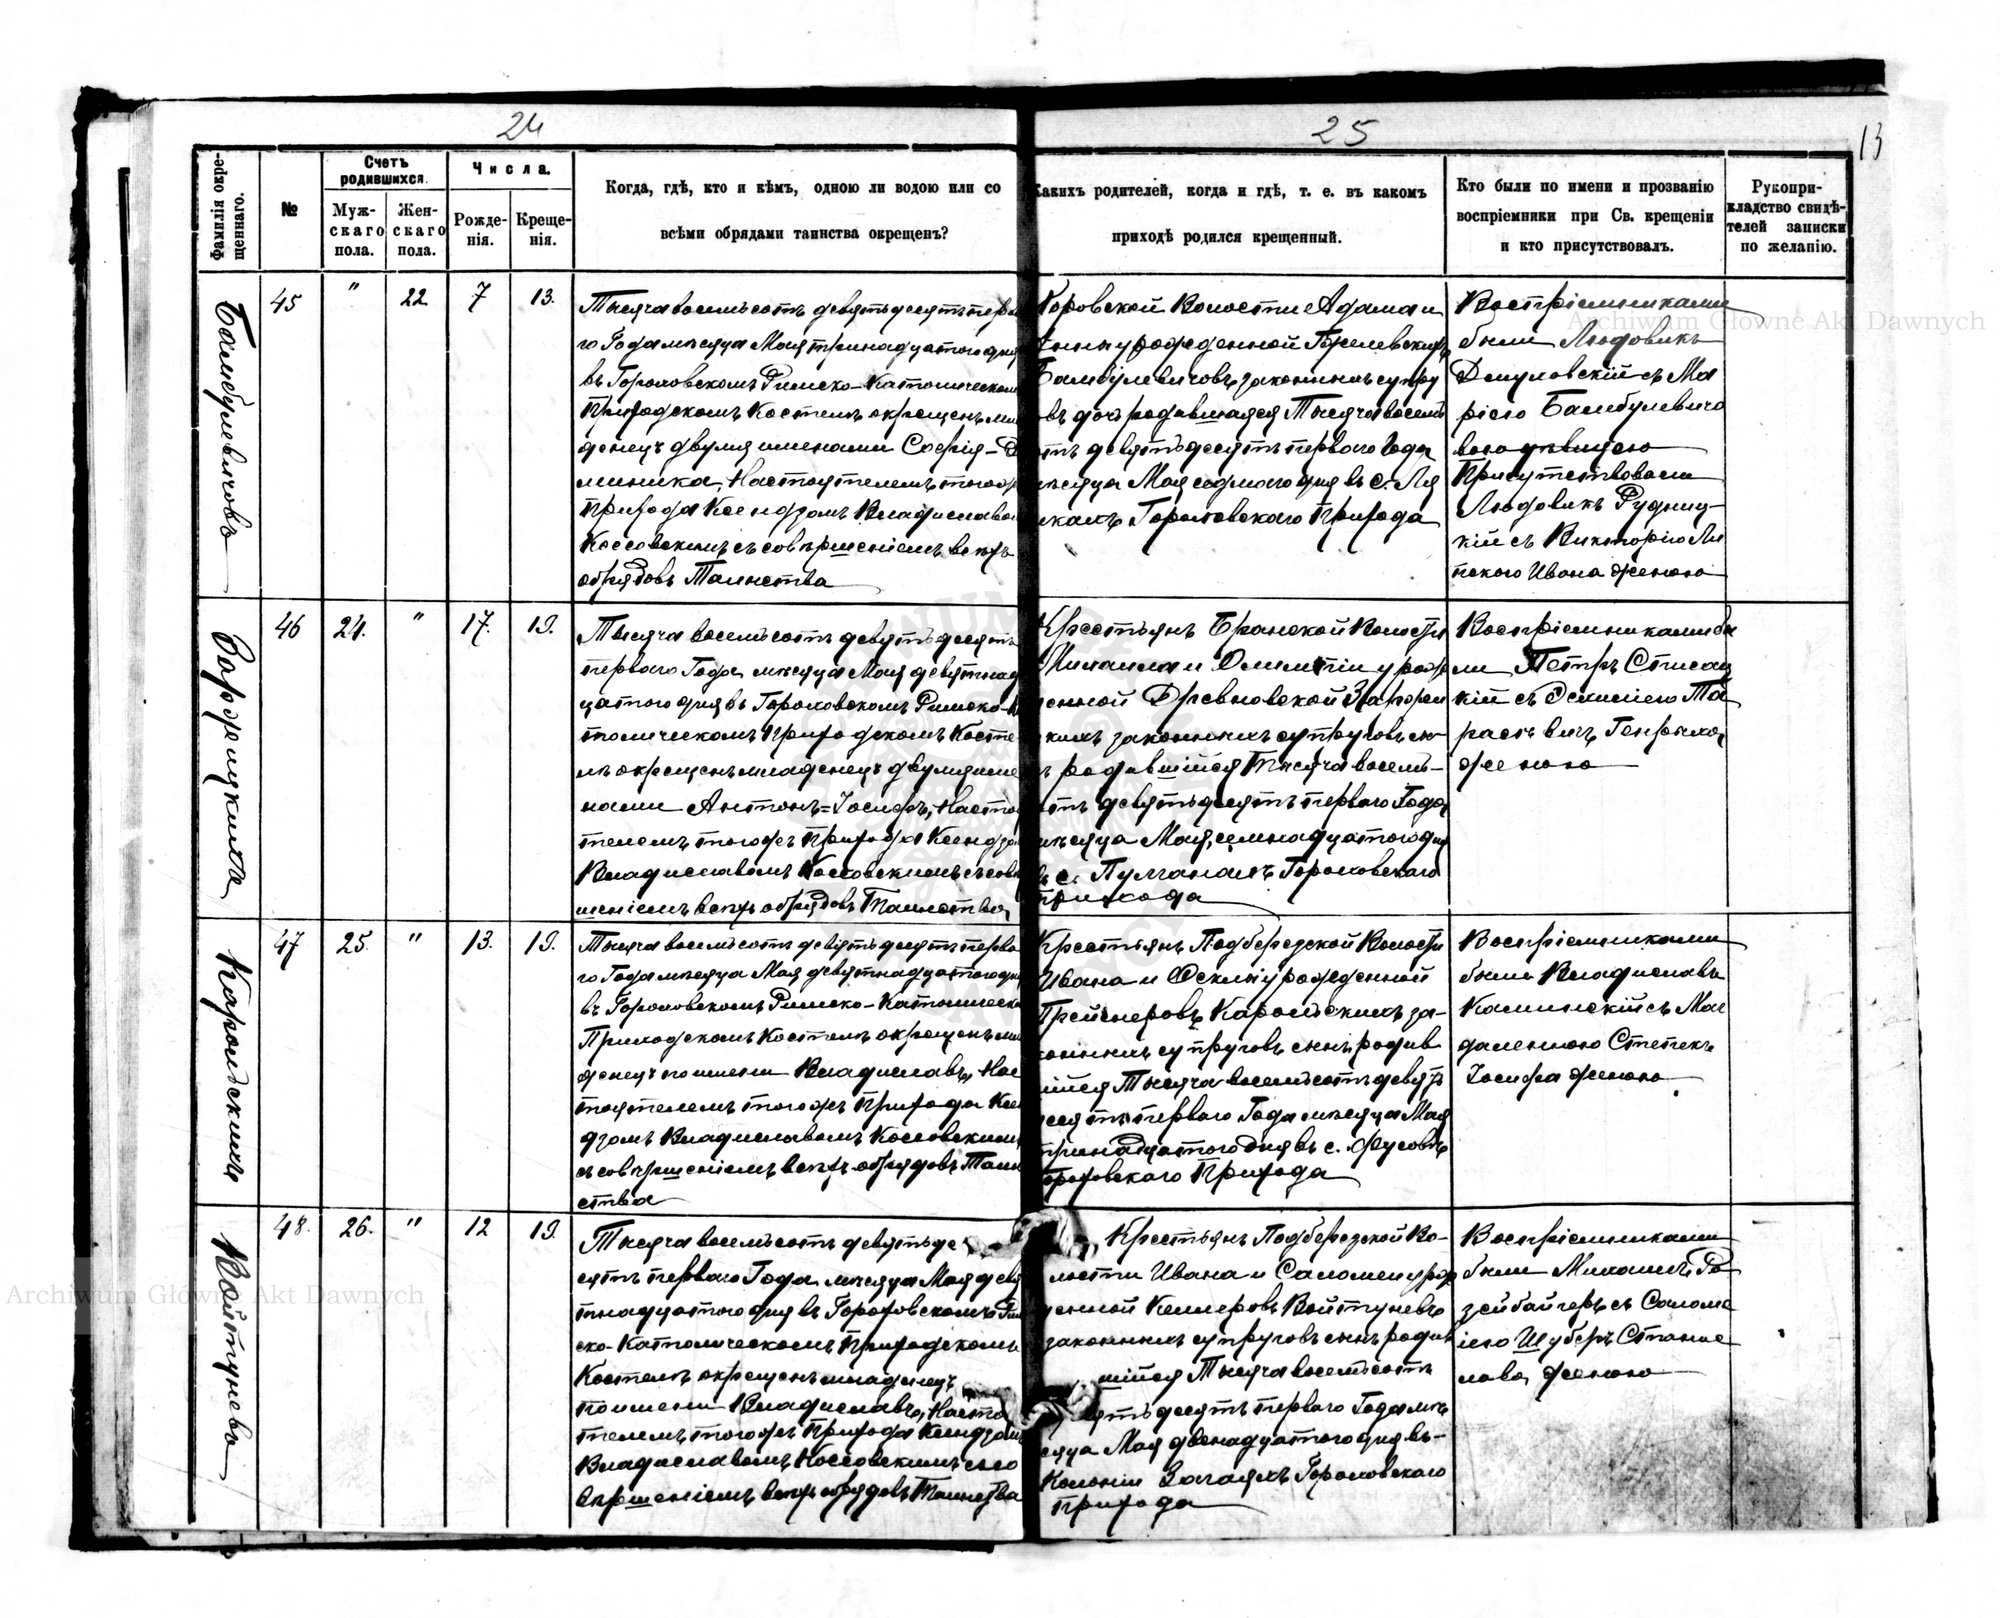 24
25
13
Фамилія окре-
щеннаго.
№
Счетъ
родившихся.
Муж-
скаго
пола.
Жен-
скаго
пола.
Числа.
Рожде-
нія.
Креще-
нія.
Когда, гдѣ, кто и кѣмъ, одною ли водою или со
всѣми обрядами таинства окрещенъ?
Какихъ родителей, когда и гдѣ, т. е. въ какомъ
приходѣ родился крещенный.
Кто были по имени и прозванію
воспріемники при Св. крещеніи
и кто присутствовалъ.
Рукопри-
кладство свидѣ-
телей записки
по желанію.
Archiwum Główne Akt Dawnych
Бамбулевичовъ
45
"
22
7
13.
Тысяча восемьсотъ девятьдесятъ перва
го Года мѣсяца Мая тринадцатого дня
въ Гороховскомъ Римско-Католическомъ
Приходскомъ Костелѣ окрещенъ мла
денецъ двумя именами Софія-До
миника, Настоятелемъ тогожъ
Прихода Ксендзомъ Владиславом
Коссовскимъ съ совершеніемъ всѣхъ
обрядовъ Таинства
Волости Адама и
урожденной
Бамбулевичовъ законныхъ супру
въ дочь родившаяся Тысяча восемь
сотъ девятьдесятъ перваго Года
мѣсяца Мая седмого дня въ с.
Гороховскаго Прихода
Воспріемниками
были Людовикъ
съ Ма
ріею Бамбулевичо
вою дѣвицею
Присутствовали
Людовикъ Рудниц-
кій съ Викторіею
Ивана женою
46
24.
"
17.
19.
Тысяча восемьсотъ девятьдесятъ
перваго Года мѣсяца Мая девятнад
цатого дня въ Гороховскомъ Римско-Ка
толическомъ Приходскомъ Косте
лѣ окрещенъ младенецъ двумя име
нами Антонъ=Іосифъ, Настоя
телемъ тогожъ Прихода Ксендзом
Владиславомъ Коссовскимъ съ совер
шеніемъ всѣхъ обрядовъ Таинства
Крестьянъ Бранской Волости
Михаила и Олимпіи урож
денной Древновской
законныхъ супруговъ сы
нъ родившійся Тысяча восемь-
сотъ девятьдесятъ перваго Года
мѣсяца Мая семнадцатого дня
въ с. Пулганахъ Гороховскаго
Прихода
Воспріемниками бы
ли Петръ
кій съ
Генрыха
женою
47
25.
"
13.
19.
Тысяча восемьсотъ девятьдесятъ перва
го Года мѣсяца Мая девятнадцатого дня
въ Гороховскомъ Римско-Католическо
Приходскомъ Костелѣ окрещенъ мла
денецъ по имени Владиславъ, Нас
тоятелемъ тогожъ Прихода Ксен
дзомъ Владиславомъ Коссовскимъ
съ совершеніемъ всѣхъ обрядовъ Таин
ства
Крестьянъ Подберезской Волости
Ивана и Феклы урожденной
за-
конныхъ супруговъ сынъ родив
шійся Тысяча восемьсотъ девять
десятъ перваго Года мѣсяца Мая
тринадцатого дня въ с.
Гороховскаго Прихода
Воспріемниками
были Владиславъ
Калинскій съ Маг
даленною Стетекъ
Іосифа женою
Войтуневъ
48.
26.
"
12
19.
Тысяча восемьсотъ девятьде
сятъ перваго Года мѣсяца Мая девя
тнадцатого дня въ Гороховскомъ Рим
ско-Католическомъ Приходскомъ
Костелѣ окрещенъ младенецъ
по имени Владиславъ, Настоя
телемъ тогожъ Прихода Ксендзомъ
Владиславомъ Коссовскимъ съ со
вершеніемъ всѣхъ обрядовъ Таинства
Крестьянъ Подберезской Во-
лости Ивана и Саломеи урож
денной Келлеровъ Войтуневъ
законныхъ супруговъ сынъ родив
шійся Тысяча восемьсотъ
девятьдесятъ перваго Года мѣ
сяца Мая двенадцатого дня въ-
Колоніи Гороховскаго
Прихода
Воспріемниками
были Михаилъ
съ Саломе
іею Шуберъ Станис
лава женою
Archiwum Główne Akt Dawnych